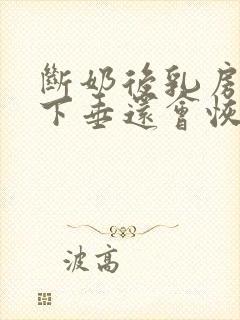 斷奶後乳房
下垂還會恢
波高